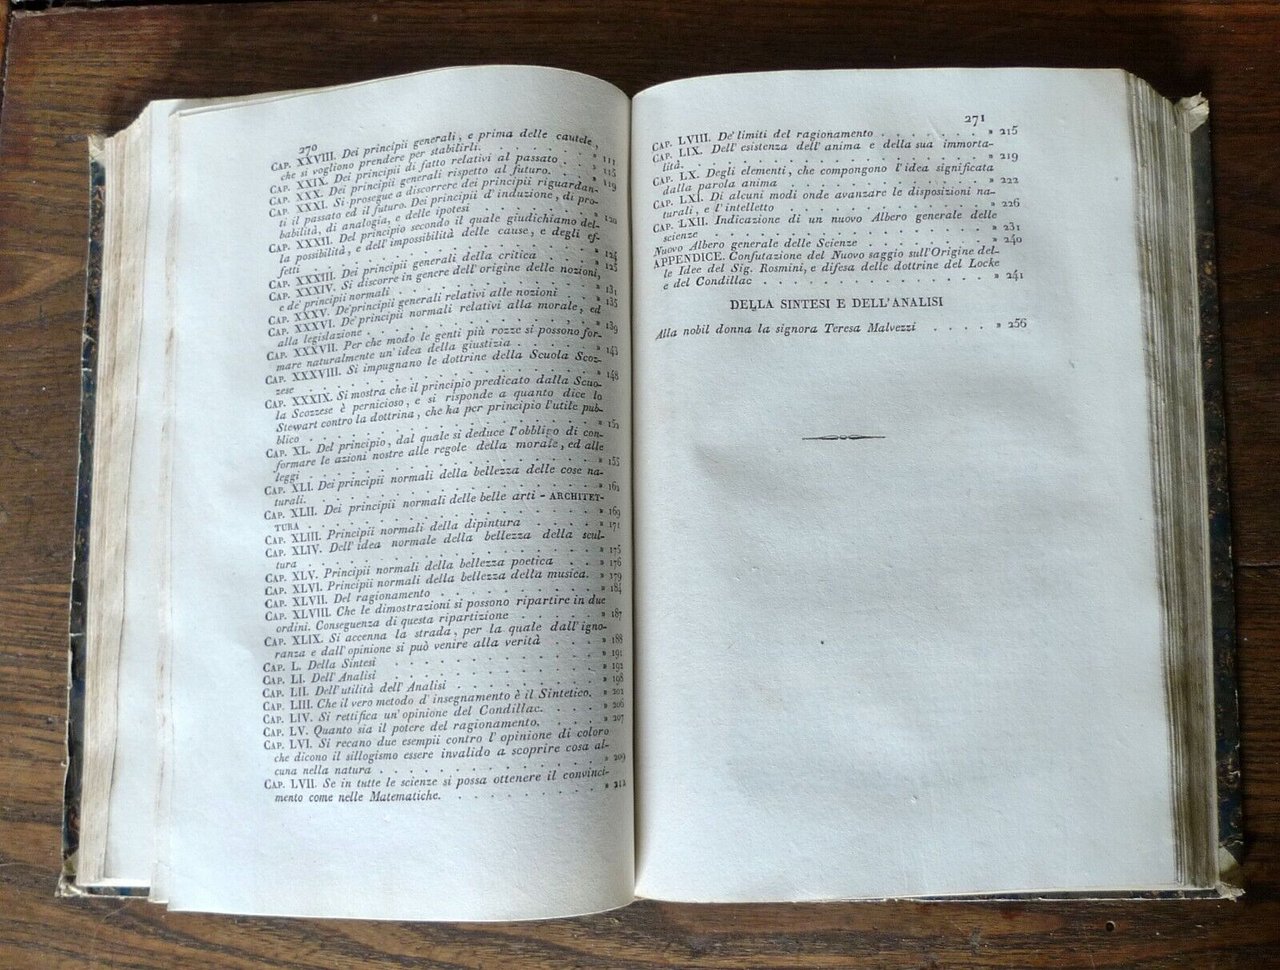 270
CAP. XXVIII. Dei principii generali, e prima delle cautele,
che si vogliono prendere per stabilirli. . . . . . » 111
CAP. XXIX. Dei principii di fatto relativi al passato . . » 115
CAP. XXX. Dei principii generali rispetto al futuro. . . » 119
CAP. XXXI. Si prosegue a discorrere dei principii riguardan-
ti il passato ed il futuro. Dei principii d'induzione, di pro-
babilità, di analogia, e delle ipotesi . . . . . . » 120
CAP. XXXII. Del principio secondo il quale giudichiamo del-
la possibilità, e dell'impossibilità delle cause, e degli ef-
fetti . . . . . . . . . . . . » 124
CAP. XXXIII. Dei principii generali della critica . . . » 125
CAP. XXXIV. Si discorre in genere dell'origine delle nozioni,
e de' principii normali . . . . . . . . . » 131
CAP. XXXV. De' principii generali relativi alle nozioni . . » 135
CAP. XXXVI. De' principii normali relativi alla morale, ed
alla legislazione . . . . . . . . . . » 139
CAP. XXXVII. Per che modo le genti più rozze si possono for-
mare naturalmente un'idea della giustizia . . . . . » 143
CAP. XXXVIII. Si impugnano le dottrine della Scuola Scoz-
zese . . . . . . . . . . . . » 148
CAP. XXXIX. Si mostra che il principio predicato dalla Scuo-
la Scozzese è pernicioso, e si risponde a quanto dice lo
Stewart contro la dottrina, che ha per principio l'utile pub-
blico . . . . . . . . . . . . » 152
CAP. XL. Del principio, dal quale si deduce l'obbligo di con-
formare le azioni nostre alle regole della morale, ed alle
leggi . . . . . . . . . . . . » 155
CAP. XLI. Dei principii normali della bellezza delle cose na-
turali. . . . . . . . . . . . » 162
CAP. XLII. Dei principii normali delle belle arti - ARCHITET-
TURA . . . . . . . . . . . . » 169
CAP. XLIII. Principii normali della dipintura . . . . » 171
CAP. XLIV. Dell'idea normale della bellezza della scul-
tura . . . . . . . . . . . . » 175
CAP. XLV. Principii normali della bellezza poetica . . . » 176
CAP. XLVI. Principii normali della bellezza della musica. » 179
CAP. XLVII. Del ragionamento . . . . . . . . » 184
CAP. XLVIII. Che le dimostrazioni si possono ripartire in due
ordini. Conseguenza di questa ripartizione . . . . . » 187
CAP. XLIX. Si accenna la strada, per la quale dall'igno-
ranza e dall'opinione si può venire alla verità . . . . » 188
CAP. L. Della Sintesi . . . . . . . . . . » 191
CAP. LI. Dell'Analisi . . . . . . . . . . » 192
CAP. LII. Dell'utilità dell'Analisi . . . . . . . » 198
CAP. LIII. Che il vero metodo d'insegnamento è il Sintetico. » 202
CAP. LIV. Si rettifica un'opinione del Condillac. . . . » 206
CAP. LV. Quanto sia il potere del ragionamento. . . . » 207
CAP. LVI. Si recano due esempii contro l'opinione di coloro
che dicono il sillogismo essere invalido a scoprire cosa al-
cuna nella natura . . . . . . . . . . » 209
CAP. LVII. Se in tutte le scienze si possa ottenere il convinci-
mento come nelle Matematiche. . . . . . . . » 212
271
CAP. LVIII. De' limiti del ragionamento . . . . . . » 215
CAP. LIX. Dell'esistenza dell'anima e della sua immorta-
lità. . . . . . . . . . . . . » 219
CAP. LX. Degli elementi, che compongono l'idea significata
dalla parola anima . . . . . . . . . » 222
CAP. LXI. Di alcuni modi onde avanzare le disposizioni na-
turali, e l'intelletto . . . . . . . . . » 226
CAP. LXII. Indicazione di un nuovo Albero generale delle
scienze . . . . . . . . . . . . » 231
Nuovo Albero generale delle Scienze . . . . . . . » 240
APPENDICE. Confutazione del Nuovo saggio sull'Origine del-
le Idee del Sig. Rosmini, e difesa delle dottrine del Locke
e del Condillac . . . . . . . . . . » 241
DELLA SINTESI E DELL'ANALISI
Alla nobil donna la signora Teresa Malvezzi . . . . » 256